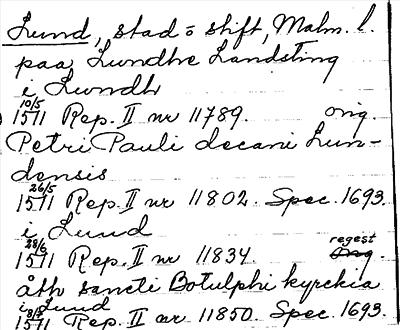 Lund, stad o stift, Malm. l.
paa Lundhe Landsting
i Lundh
10/5
1511 Rep. II nr 11789. orig.
Petri Pauli decani Lun-
densis
26/5
1511 Rep. II nr 11802. Spec. 1693.
i Lund
28/6 regest
1511 Rep. II nr 11834. orig.
åth sancti Botulphi kyrckia
i Lund
1511 Rep. II nr 11850. Spec. 1693.